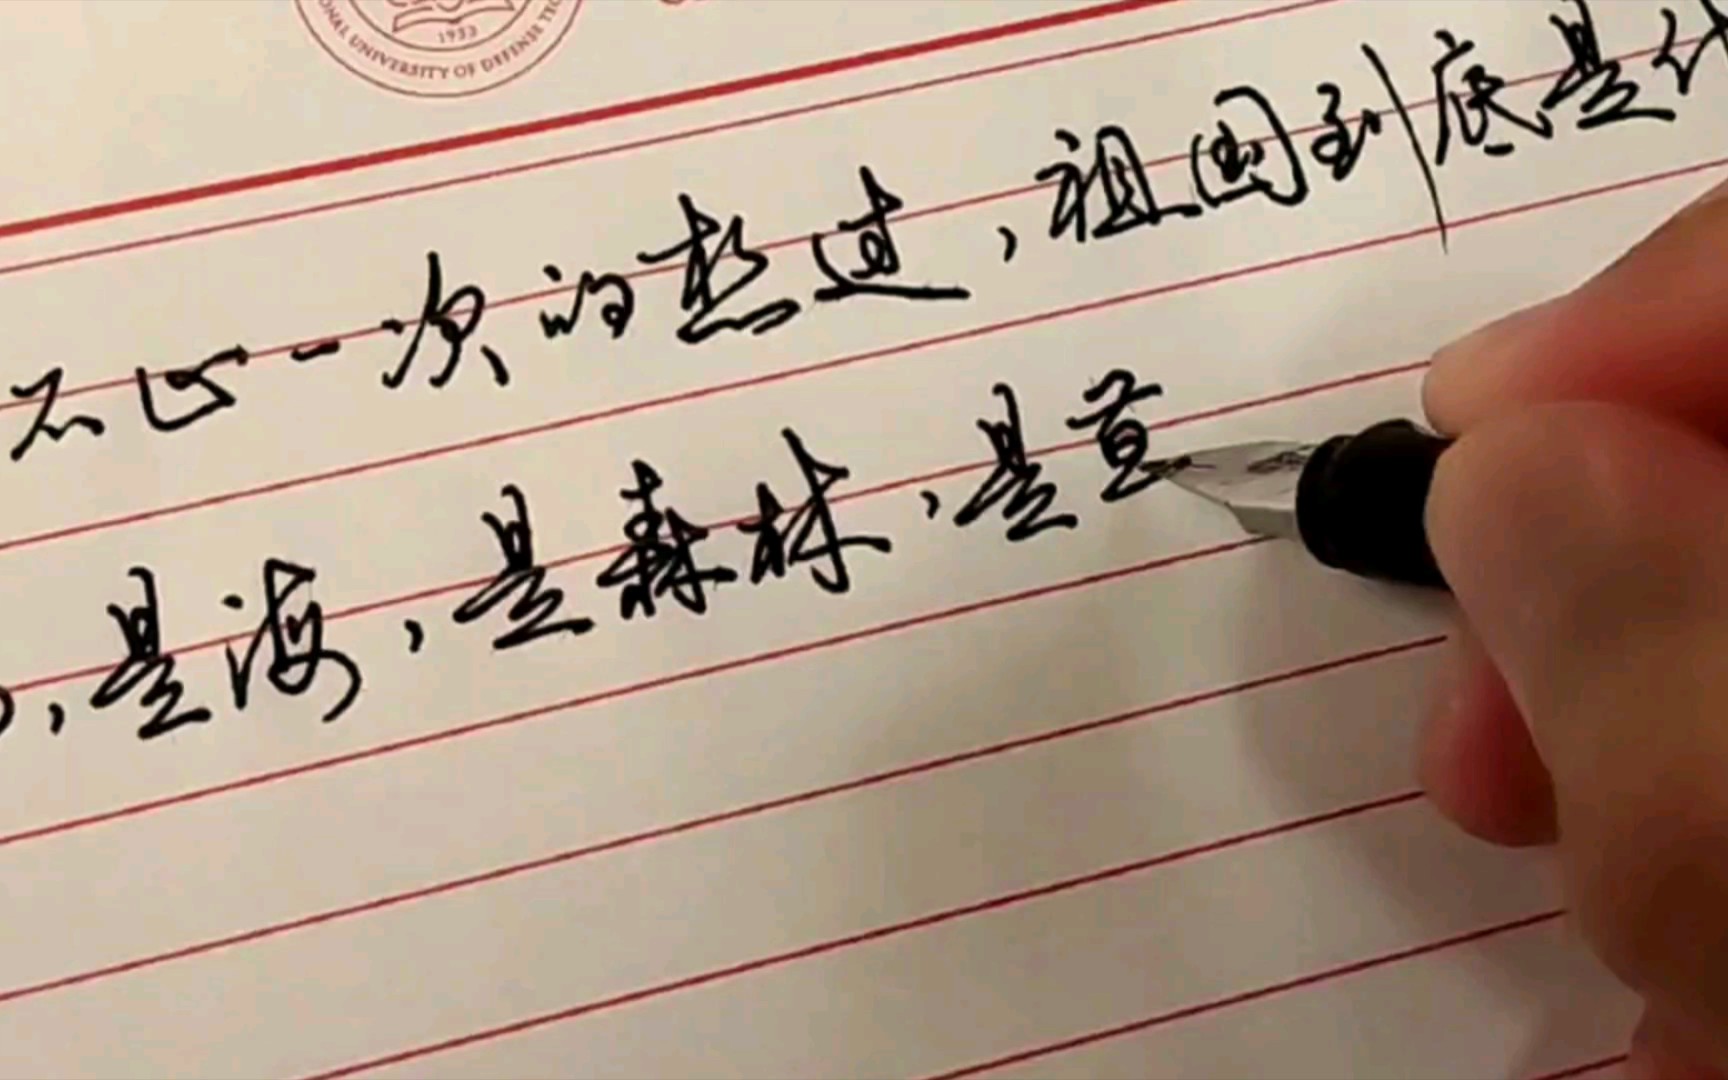 1933
ONAL UNIVERSITY OF DEFENSE TEC
不止一次的想过,祖国到底是什
,是海,是森林,是草